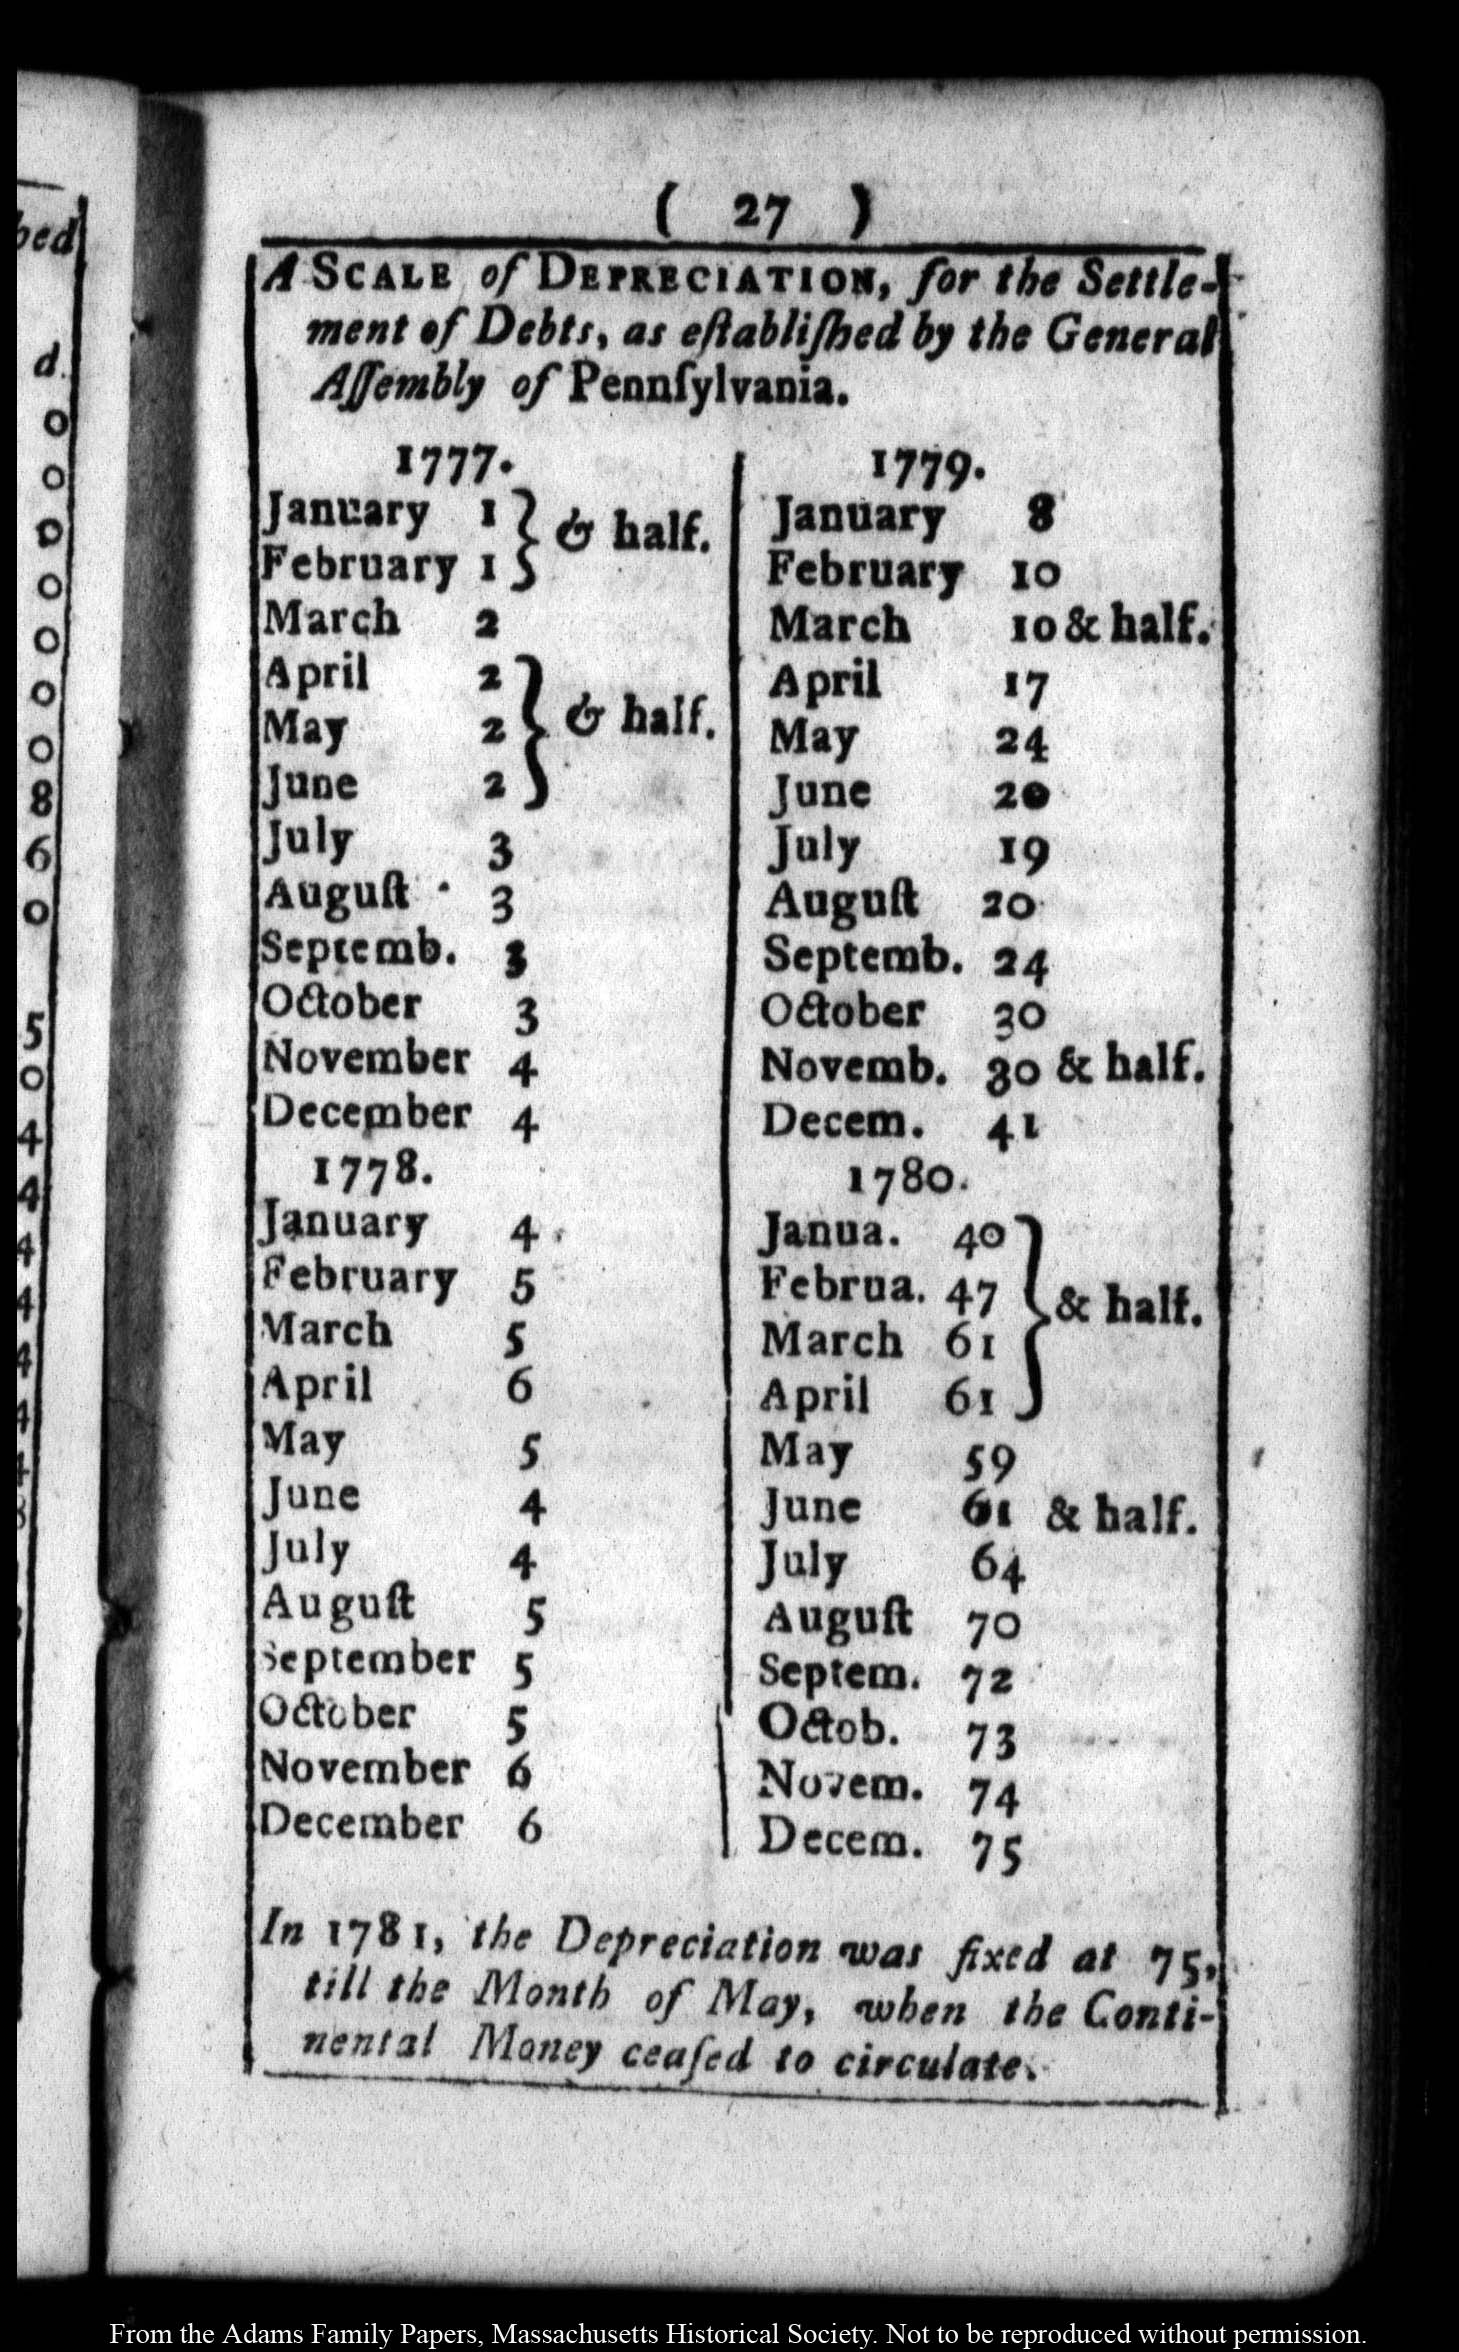 ( 27 )
A SCALE of DEPRECIATION, for the Settle-
ment of Debts, as eſtabliſhed by the General
Aſſembly of Pennſylvania.
1777.
January 1 } & half.
February 1
March 2
April 2
May 2 } & half.
June 2
July 3
Auguſt 3
Septemb. 3
October 3
November 4
December 4
1778.
January 4
February 5
March 5
April 6
May 5
June 4
July 4
Auguſt 5
September 5
October 5
November 6
December 6
1779.
January 8
February 10
March 10 & half.
April 17
May 24
June 20
July 19
Auguſt 20
Septemb. 24
October 30
Novemb. 30 & half.
Decem. 41
1780.
Janua. 40
Februa. 47 } & half.
March 61
April 61
May 59
June 61 & half.
July 64
Auguſt 70
Septem. 72
Octob. 73
Novem. 74
Decem. 75
In 1781, the Depreciation was fixed at 75,
till the Month of May, when the Conti-
nental Money ceaſed to circulate.
d.
0
0
0
0
0
0
0
8
6
0
5
0
4
4
4
4
4
4
From the Adams Family Papers, Massachusetts Historical Society. Not to be reproduced without permission.